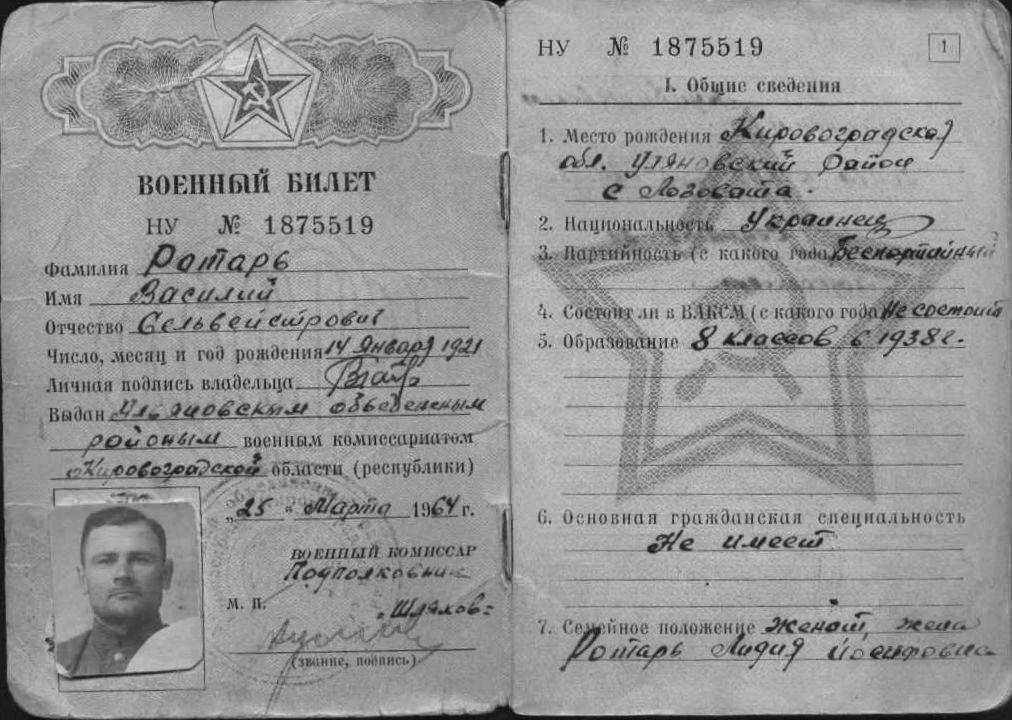 ВОЕННЫЙ БИЛЕТ
НУ № 1875519
Фамилия Ротарь
Имя Василий
Отчество Сельвейстрович
Число, месяц и год рождения 14 Января 1921
Личная подпись владельца
Выдан Ульяновским объедененым
районым военным комиссариатом
Кировоградской области (республики)
„25 " Марта 1964 г.
ВОЕННЫЙ КОМИССАР
Подполковник
М. П.
Шляхов
(звание, подпись)
НУ № 1875519
1
I. Общие сведения
1. Место рождения Кировоградской
обл. Уляновский район
с Логовата.
2. Национальность Украинец
3. Партийность (с какого года Беспортийный
4. Состоит ли в ВЛКСМ (с какого года Не состоит
5. Образование 8 классов в 1938 г.
6. Основная гражданская специальность
Не имеет
7. Семейное положение женат, жена
Ротарь Лидия Иосифовна